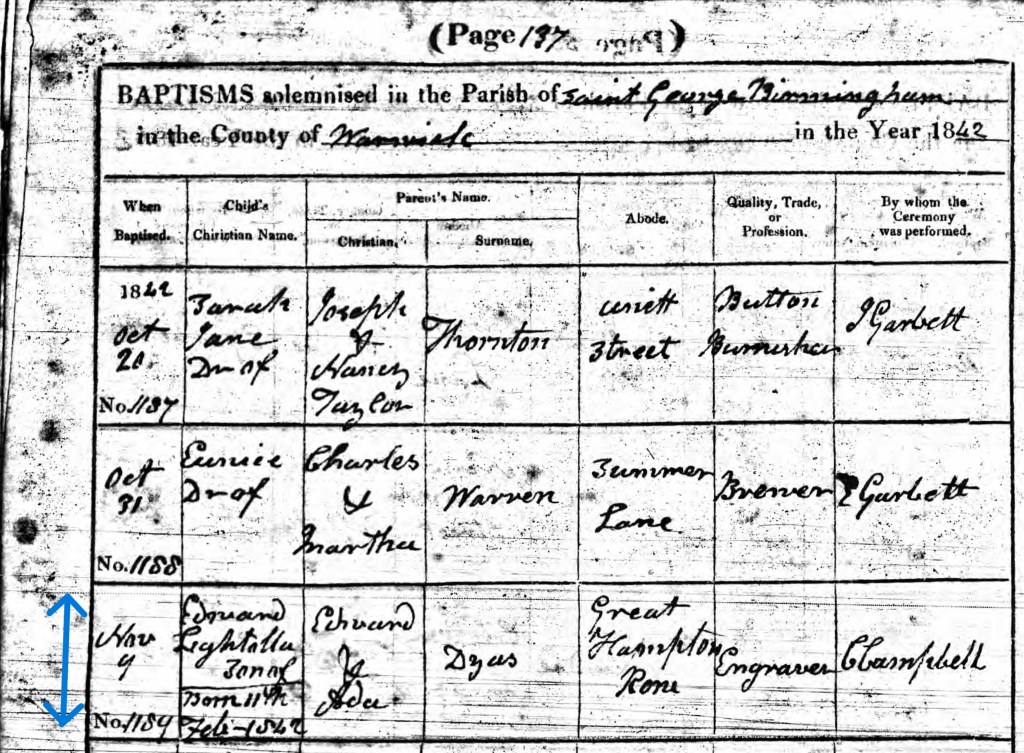 (Page 137)
BAPTISMS solemnised in the Parish of Saint George Birmingham
in the County of Warwick in the Year 1842
When Baptised.
Child's Christian Name.
Parent's Name.
Christian.
Surname.
Abode.
Quality, Trade, or Profession.
By whom the Ceremony was performed.
1842
Oct
No. 1187
Sarah
Jane
Dr of
Joseph
&
Nancy
Taylor
Thornton
Unett
Street
Button
Burnisher
J Garbett
Oct
31
No. 1188
Eunice
Dr of
Charles
&
Martha
Warren
Summer
Lane
Brewer
J Garbett
Nov
9
No. 1189
Edward
Son of
Born 11th
Feb - 1842
Edward
&
Ada
Dyas
Great
Hampton
Row
Engraver
C Campbell